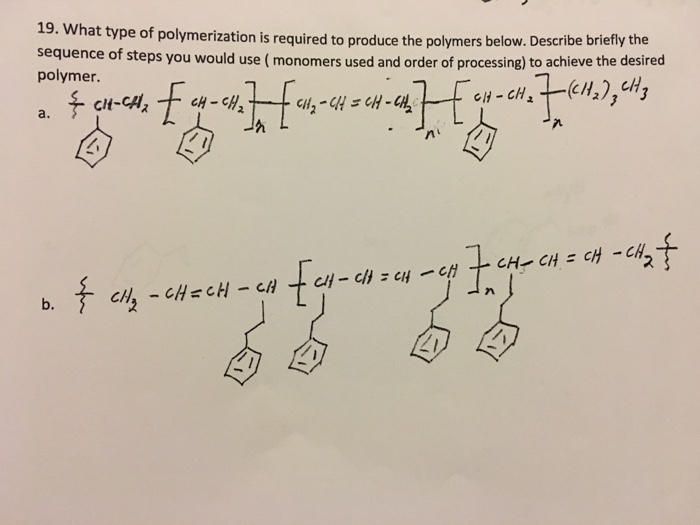 19. What type of polymerization is required to produce the polymers below. Describe briefly the
sequence of steps you would use ( monomers used and order of processing) to achieve the desired
polymer.
a. CH-CH₂ [ CH-CH₂ ]n [ CH₂-CH=CH-CH₂ ]n' [ CH-CH₂ ]n (CH₂)₃CH₃
b. CH₂-CH=CH-CH [ CH-CH=CH-CH ]n CH-CH=CH-CH₂